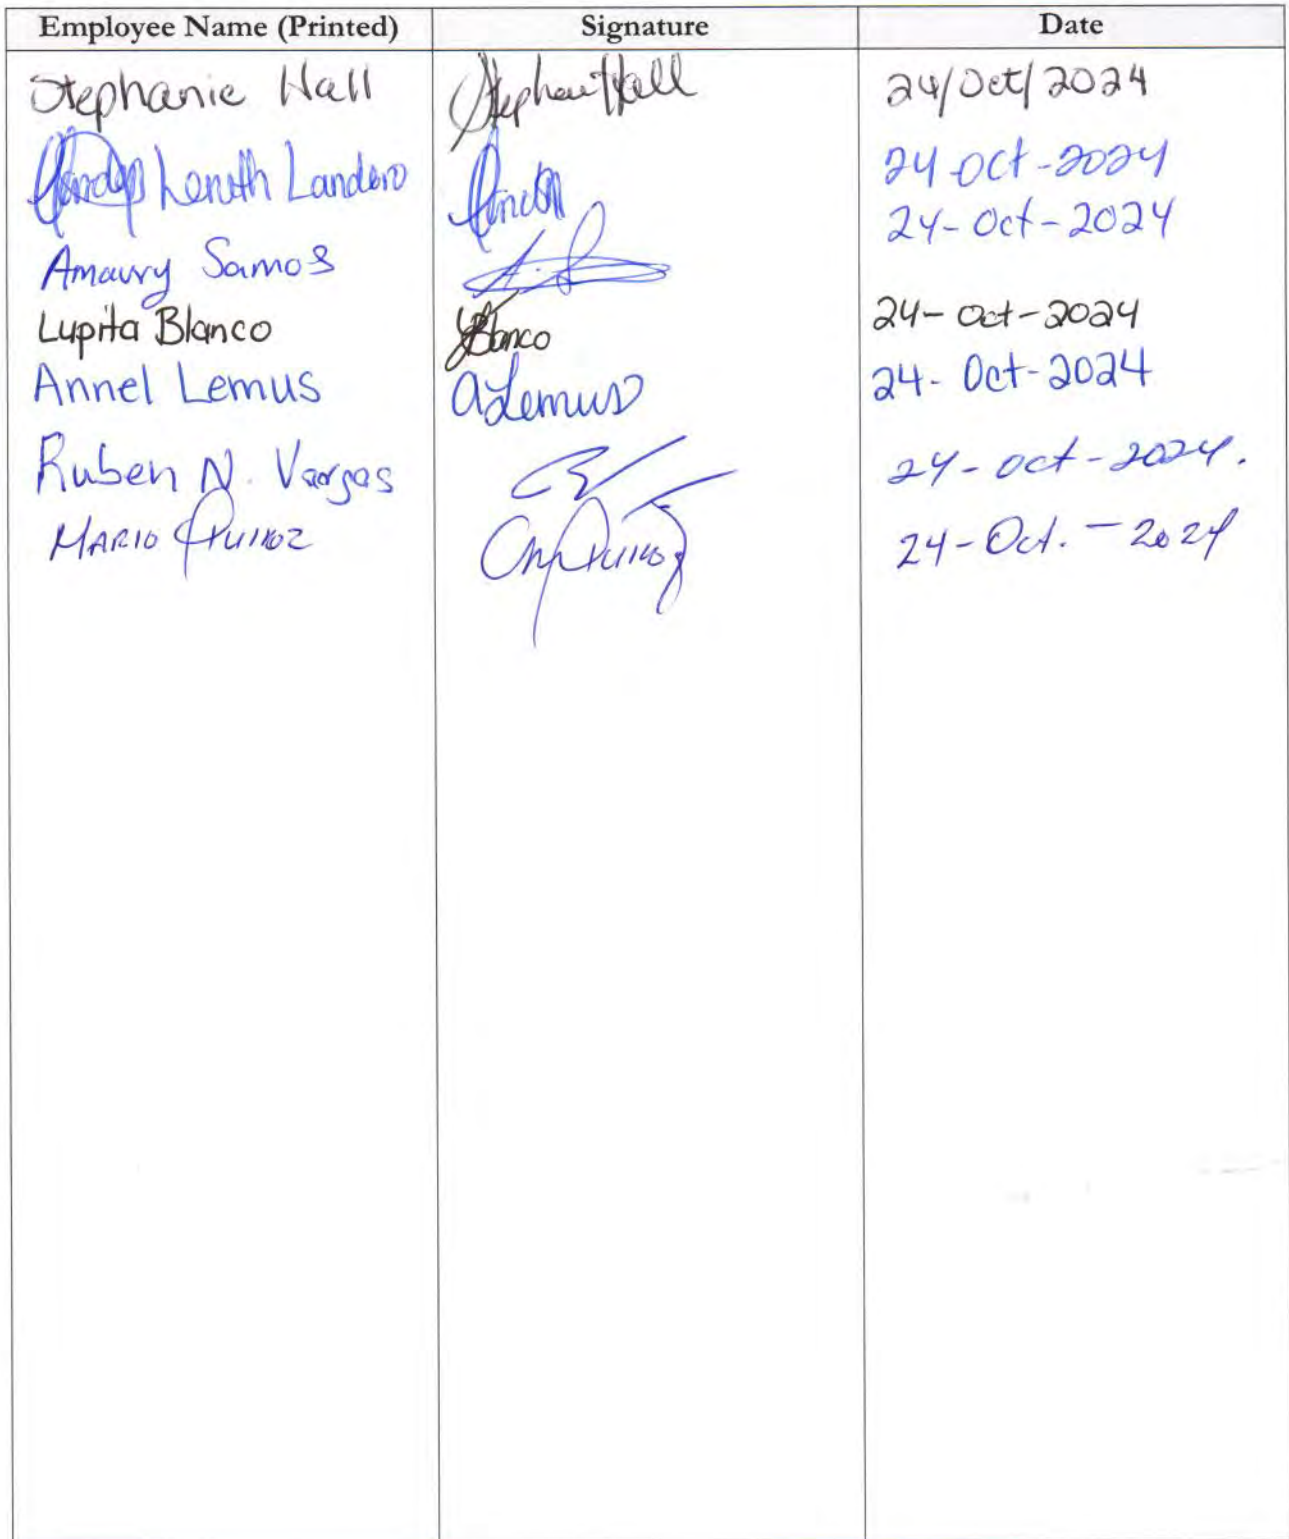 Employee Name (Printed) Signature Date
Stephanie Hall Stephanie Hall 24/Oct/2024
Lenith Landero 24-Oct-2024
Amaury Samos 24-Oct-2024
Lupita Blanco Blanco 24-Oct-2024
Annel Lemus aLemus 24-Oct-2024
Ruben N. Vargas 24-oct-2024.
MARIO QUIROZ Quiroz 24-Oct.-2024